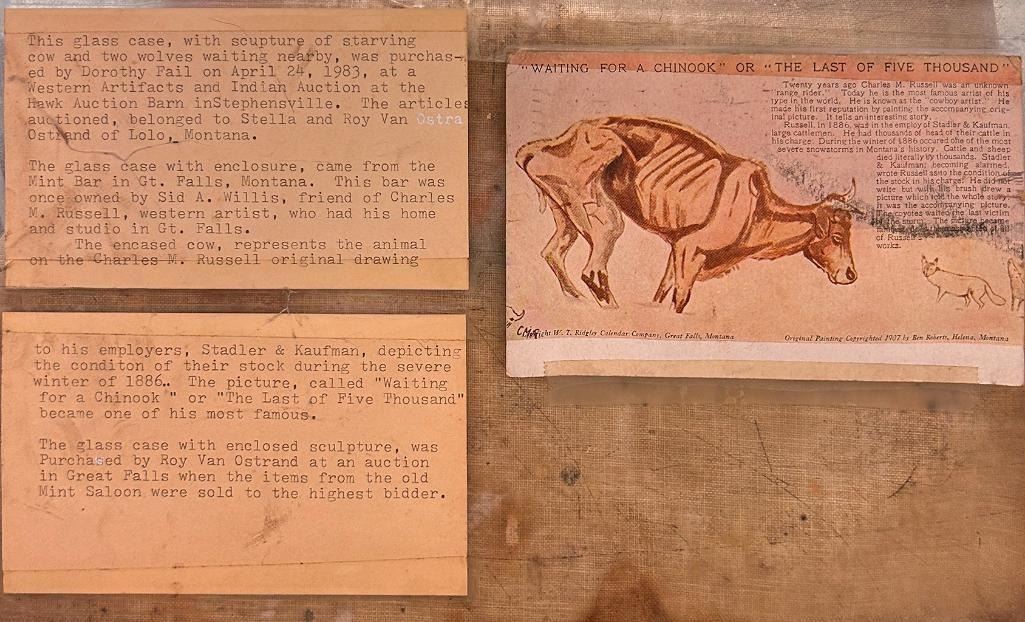 This glass case, with scupture of starving
cow and two wolves waiting nearby, was purchas-
ed by Dorothy Fail on April 24, 1983, at a
Western Artifacts and Indian Auction at the
Hawk Auction Barn inStephensville. The articles
auctioned, belonged to Stella and Roy Van Ostra
Ostrand of Lolo, Montana.
The glass case with enclosure, came from the
Mint Bar in Gt. Falls, Montana. This bar was
once owned by Sid A. Willis, friend of Charles
M. Russell, western artist, who had his home
and studio in Gt. Falls.
The encased cow, represents the animal
on the Charles M. Russell original drawing
to his employers, Stadler & Kaufman, depicting
the conditon of their stock during the severe
winter of 1886.. The picture, called "Waiting
for a Chinook " or "The Last of Five Thousand"
became one of his most famous.
The glass case with enclosed sculpture, was
Purchased by Roy Van Ostrand at an auction
in Great Falls when the items from the old
Mint Saloon were sold to the highest bidder.
"WAITING FOR A CHINOOK" OR "THE LAST OF FIVE THOUSAND"
Twenty years ago Charles M. Russell was an unknown
"range rider." Today he is the most famous artist of his
type in the world. He is known as the "cowboy artist." He
made his first reputation by painting the accompanying orig-
inal picture. It tells an interesting story.
Russell, in 1886, was in the employ of Stadler & Kaufman,
large cattlemen. He had thousands of head of their cattle in
his charge. During the winter of 1886 occured one of the most
severe snowstorms in Montana's history. Cattle and sheep
died literally by thousands. Stadler
& Kaufman, becoming alarmed,
wrote Russell as to the condition of
the stock in his charge. He did not
write but with his brush drew a
picture which told the whole story.
It was the accompanying picture.
The coyotes waited the last victim
of the storm. The picture became
of Russell's
works.
CMR
W. T. Ridgley Calendar Company, Great Falls, Montana
Original Painting Copyrighted 1907 by Ben Roberts, Helena, Montana